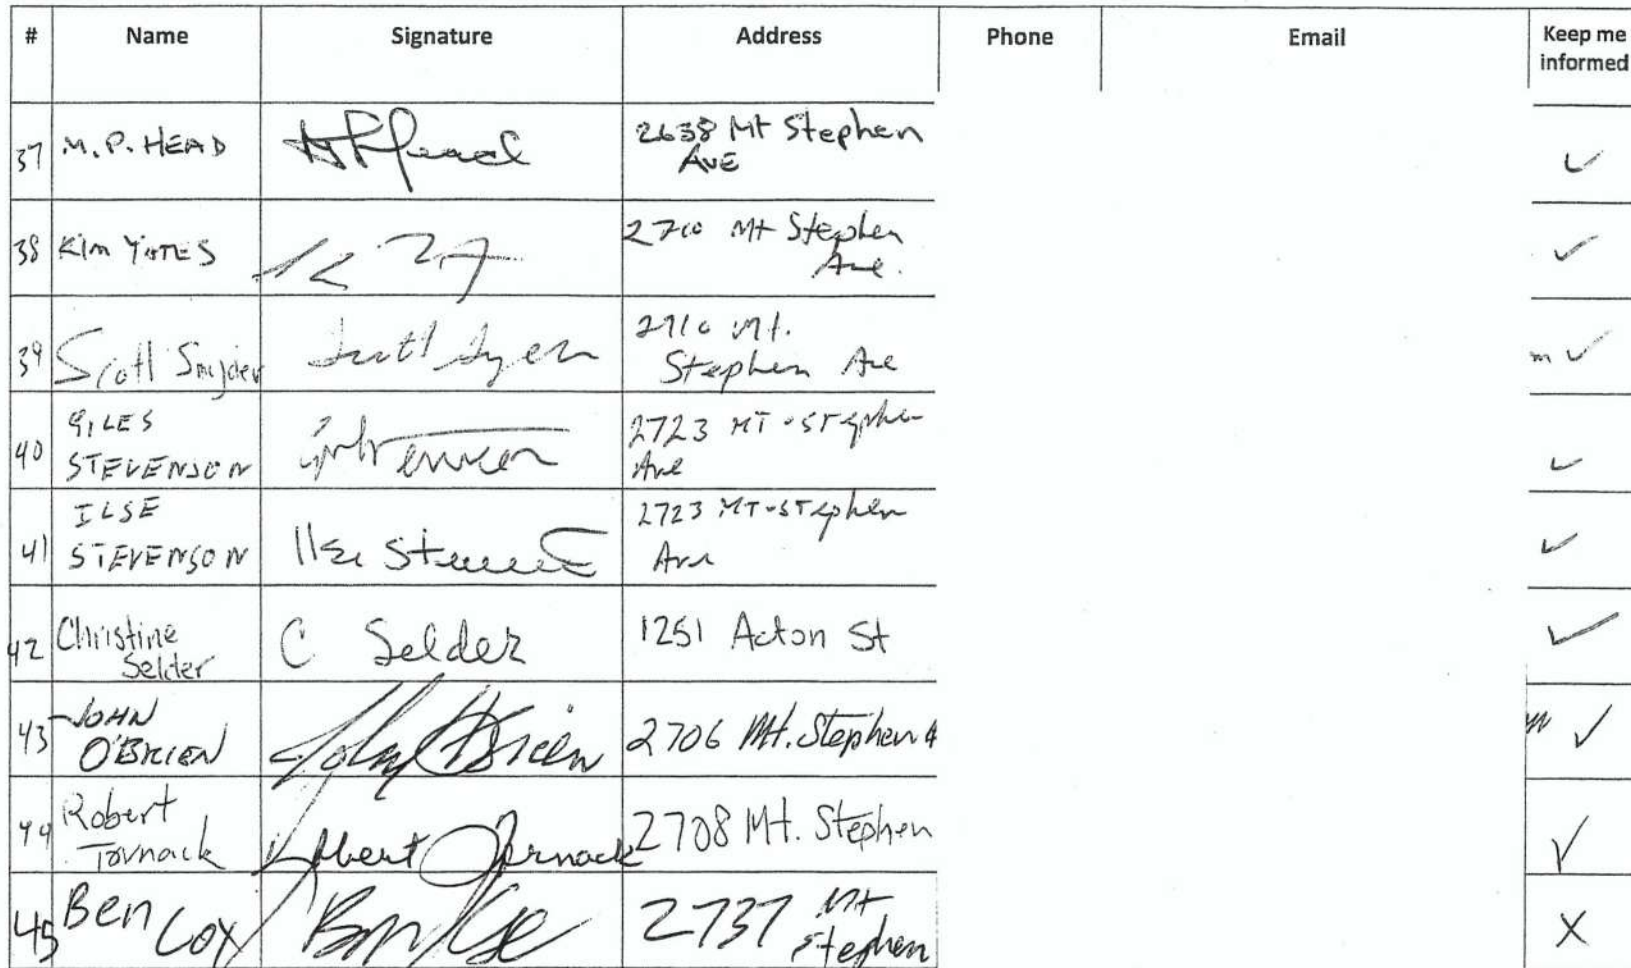 # Name Signature Address Phone Email Keep me informed
37 M.P. HEAD 2638 Mt Stephen
AVE
38 Kim YATES 2710 Mt Stephen
Ave.
39 Scott Snyder 2710 Mt.
Stephen Ave
40 GILES
STEVENSON 2723 MT-STephen
Ave
41 ILSE
STEVENSON Ilse 2723 MT-STephen
Ave
42 Christine
Selder C Selder 1251 Acton St
43 JOHN
O'BRIEN John O'Brien 2706 Mt. Stephen
44 Robert
Tornack Robert Tornack 2708 Mt. Stephen
45 Ben Cox 2737 Mt
Stephen X